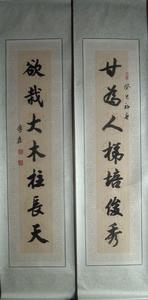 甘為人梯培俊秀
欲栽大木柱長天